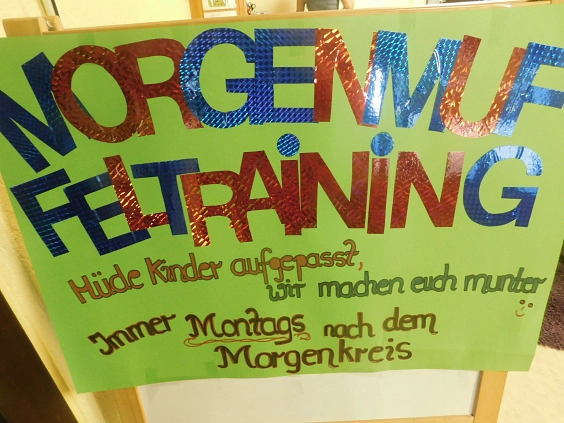 MORGENMUF
FELTRAiNiNG
Müde Kinder aufgepasst,
wir machen euch munter
Immer Montags nach dem
Morgenkreis